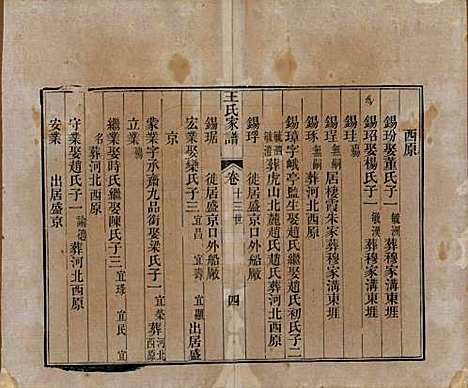 西原
錫玢娶董氏子一毓瀛葬穆家溝東堐
錫玿娶楊氏子一毓漢葬穆家溝東堐
錫珪殤
錫珵無嗣居棲霞朱家葬穆家溝東堐
錫琭無嗣葬河北西原
錫璋字峨亭監生娶趙氏繼娶趙氏初氏子二
毓澄葬虎山北麓趙氏趙氏葬河北西原
錫琈 徙居盛京口外船廠
王氏家譜 卷 十三世 四
錫琚 徙居盛京口外船廠
宏業娶欒氏子三宜昌 宜壽 宜觀出居盛
京
蒙業字承齋九品銜娶梁氏子一宜榮葬河北西原
立業殤
繼業娶時氏繼娶陳氏子三宜瑑 宜民 宜
名葬河北西原
守業娶趙氏子一葬河北西原
安業 出居盛京